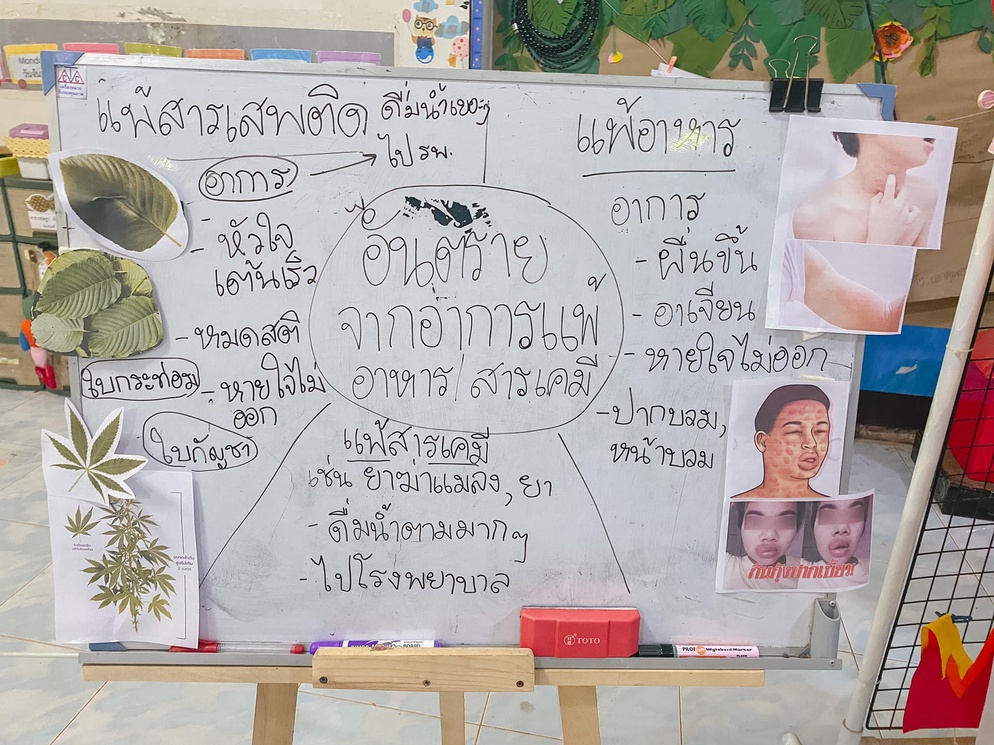 แพ้สารเสพติด ดื่มน้ำเยอะๆ
ไป รพ.
อาการ
- หัวใจ
เต้นเร็ว
- หมดสติ
- หายใจไม่
ออก
ใบกระท่อม
ใบกัญชา
อันตราย
จากอาการแพ้
อาหาร/สารเคมี
แพ้สารเคมี
เช่น ยาฆ่าแมลง, ยา
- ดื่มน้ำตามมากๆ
- ไปโรงพยาบาล
แพ้อาหาร
อาการ
- ผื่นขึ้น
- อาเจียน
- หายใจไม่ออก
- ปากบวม,
หน้าบวม
กินกุ้งปากเบี้ยว!
TOTO
PILOT Whiteboard Marker
Monda